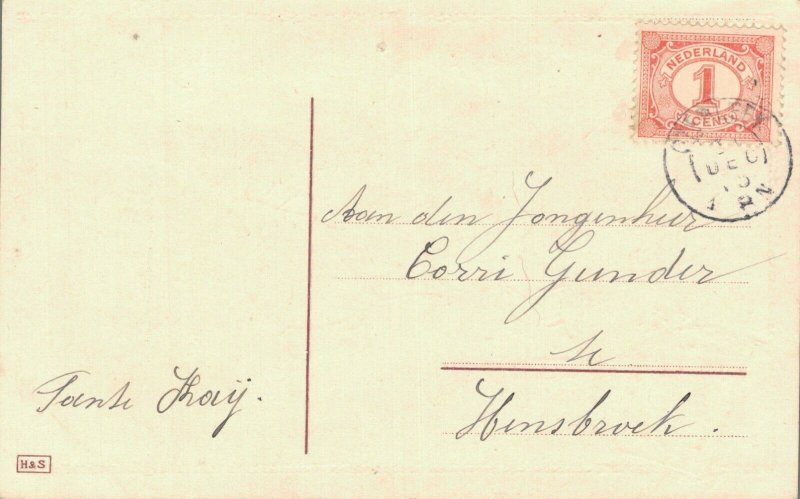 NEDERLAND
1
CENT
DEC
Aan den Jongenheer
Corri Gunder
te
Hensbroek.
Tante Kaij.
H&S